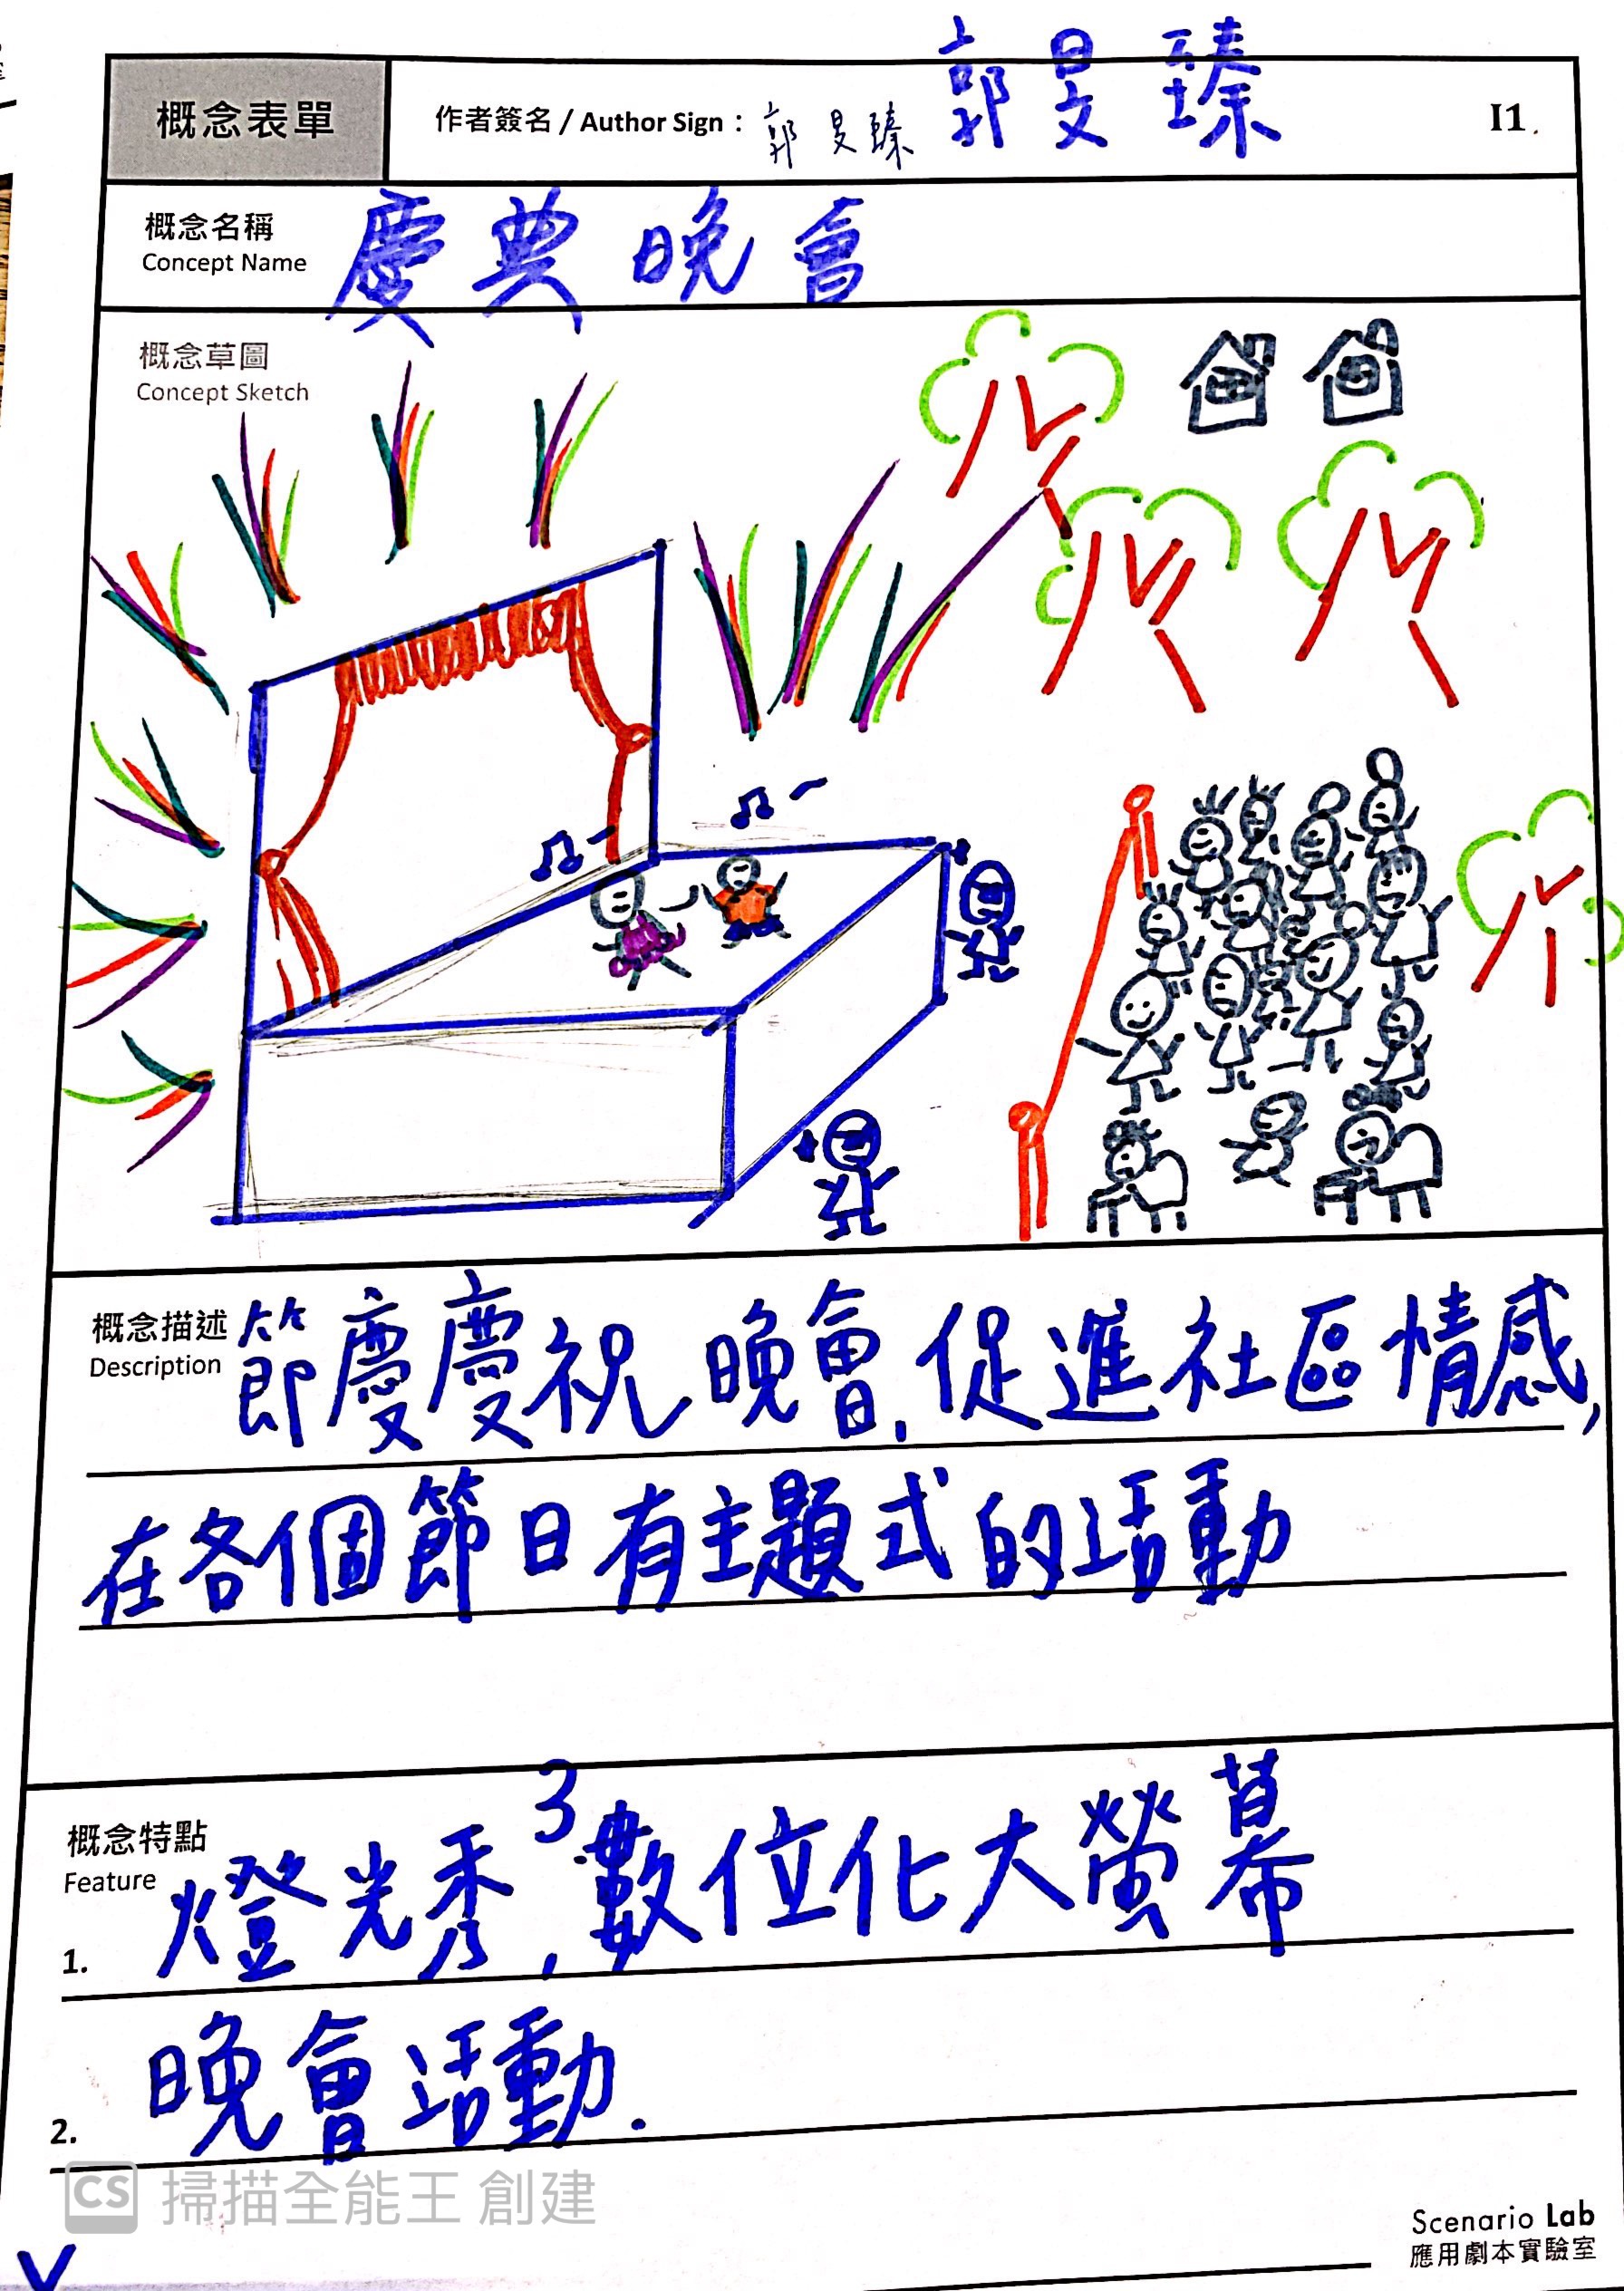 概念表單
作者簽名 / Author Sign : 郭旻臻 郭旻臻
I1.
概念名稱 慶典晚會
Concept Name
概念草圖
Concept Sketch
概念描述 節慶慶祝晚會,促進社區情感,
Description
在各個節日有主題式的活動
概念特點
Feature
1. 燈光秀,3數位化大螢幕
2. 晚會活動.
CS 掃描全能王 創建
Scenario Lab
應用劇本實驗室